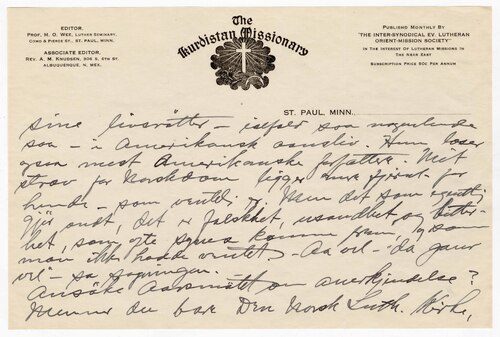 EDITOR.
PROF. M. O. WEE, LUTHER SEMINARY,
COMO & PIERCE ST., ST. PAUL, MINN.
ASSOCIATE EDITOR,
REV. A. M. KNUDSEN, 306 S. 6TH ST.
ALBUQUERQUE, N. MEX.
The
Kurdistan Missionary
PUBLISHED MONTHLY BY
"THE INTER-SYNODICAL EV. LUTHERAN
ORIENT-MISSION SOCIETY"
IN THE INTEREST OF LUTHERAN MISSIONS IN
THE NEAR EAST
SUBSCRIPTION PRICE 50C PER ANNUM
ST. PAUL, MINN.
sine livsrøtter – iselfold saa nogenlunde
saa – i Amerikansk aandsliv. Hun læser
ogsaa mest Amerikanske forfattere. Mit
stræv for Norskdom ligger for
hende – som ventelig er. Men det som egentlig
gjør ondt, det er falskhet, usandhet og bitter-
het, som ofte synes komme frem, og som
man ikke hadde ventet. Aa vel – "da gaar
vel" – sa
Ansøke Aarsmøtet om anerkjendelse?
Mener du bare Den Norsk Luth. Kirke,